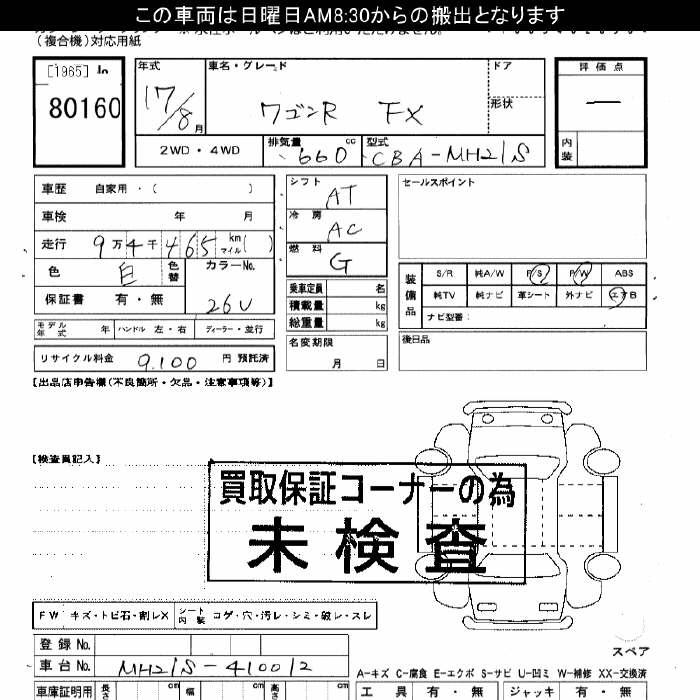 この車両は日曜日AM8:30からの搬出となります
(複合機)対応用紙
[1965] lo
80160
年式
17/8月
車名・グレード
ワゴンR FX
ドア
形状
評価点
—
内装
2WD・4WD
排気量
660 cc
型式
CBA-MH21S
車歴 自家用・(
車検 年 月
走行 9万4千465 km マイル( )
色 白 色替 カラーNo.
保証書 有・無 26U
モデル年式 年 ハンドル 左・右 ディーラー・並行
リサイクル料金 9,100 円 預託済
シフト AT
冷房 AC
燃料 G
乗車定員 名
積載量 kg
総重量 kg
名変期限
月 日
セールスポイント
装備品
S/R 純A/W P/S P/W ABS
純TV 純ナビ 革シート 外ナビ エアB
ナビ型番:
後日品
【出品店申告欄(不良箇所・欠品・注意事項等)】
【検査員記入】
買取保証コーナーの為
未検査
FW キズ・トビ石・割レX シート内装 コゲ・穴・汚レ・シミ・破レ・スレ
スペア
登録No.
車台No. MH21S-410012
A-キズ C-腐食 E-エクボ S-サビ U-凹ミ W-補修 XX-交換済
車庫証明用 長さ cm 幅 cm 高さ cm
工具 有・無 ジャッキ 有・無